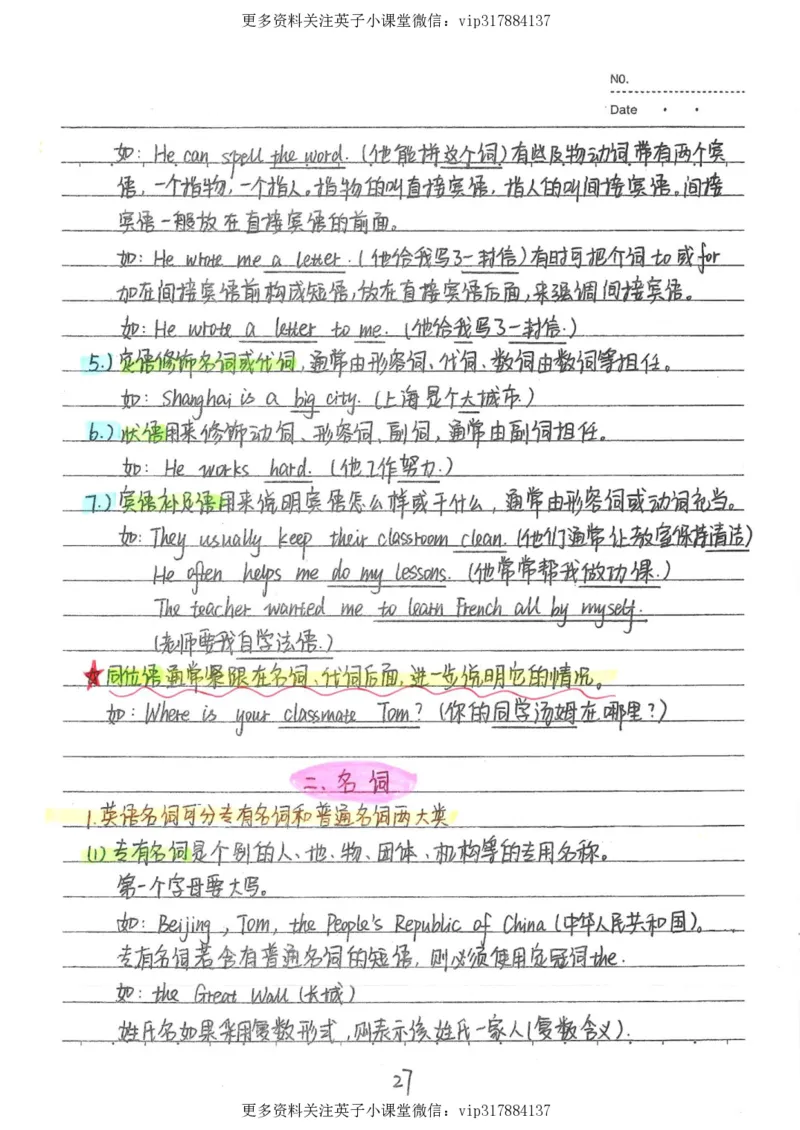 更多资料关注英子小课堂微信：vip317884137
NO.
Date
如: He can spell the word. (他能拼这个词) 有些及物动词带有两个宾
语，一个指物，一个指人。指物的叫直接宾语，指人的叫间接宾语。间接
宾语一般放在直接宾语的前面。
如: He wrote me a letter. (他给我写了一封信) 有时可把介词to或for
加在间接宾语前构成短语,放在直接宾语后面,来强调间接宾语。
如: He wrote a letter to me. (他给我写了一封信.)
5.) 定语修饰名词或代词,通常由形容词、代词、数词由数词等担任。
如: Shanghai is a big city. (上海是个大城市.)
6.) 状语用来修饰动词、形容词、副词，通常由副词担任。
如: He works hard. (他工作努力.)
7.) 宾语补足语用来说明宾语怎么样或干什么，通常由形容词或动词充当。
如: They usually keep their classroom clean. (他们通常让教室保持清洁)
He often helps me do my lessons. (他常常帮我做功课.)
The teacher wanted me to learn French all by myself.
(老师要我自学法语.)
★同位语通常紧跟在名词、代词后面,进一步说明它的情况。
如: Where is your classmate Tom? (你的同学汤姆在哪里?)
二、名词
1.英语名词可分专有名词和普通名词两大类
(1) 专有名词是个别的人、地、物、团体、机构等的专用名称。
第一个字母要大写。
如: Beijing, Tom, the People's Republic of China (中华人民共和国)。
专有名词若含有普通名词的短语，则必须使用定冠词the.
如: the Great Wall (长城)
姓氏名如果采用复数形式,则表示该姓氏一家人(复数含义).
27
更多资料关注英子小课堂微信：vip317884137